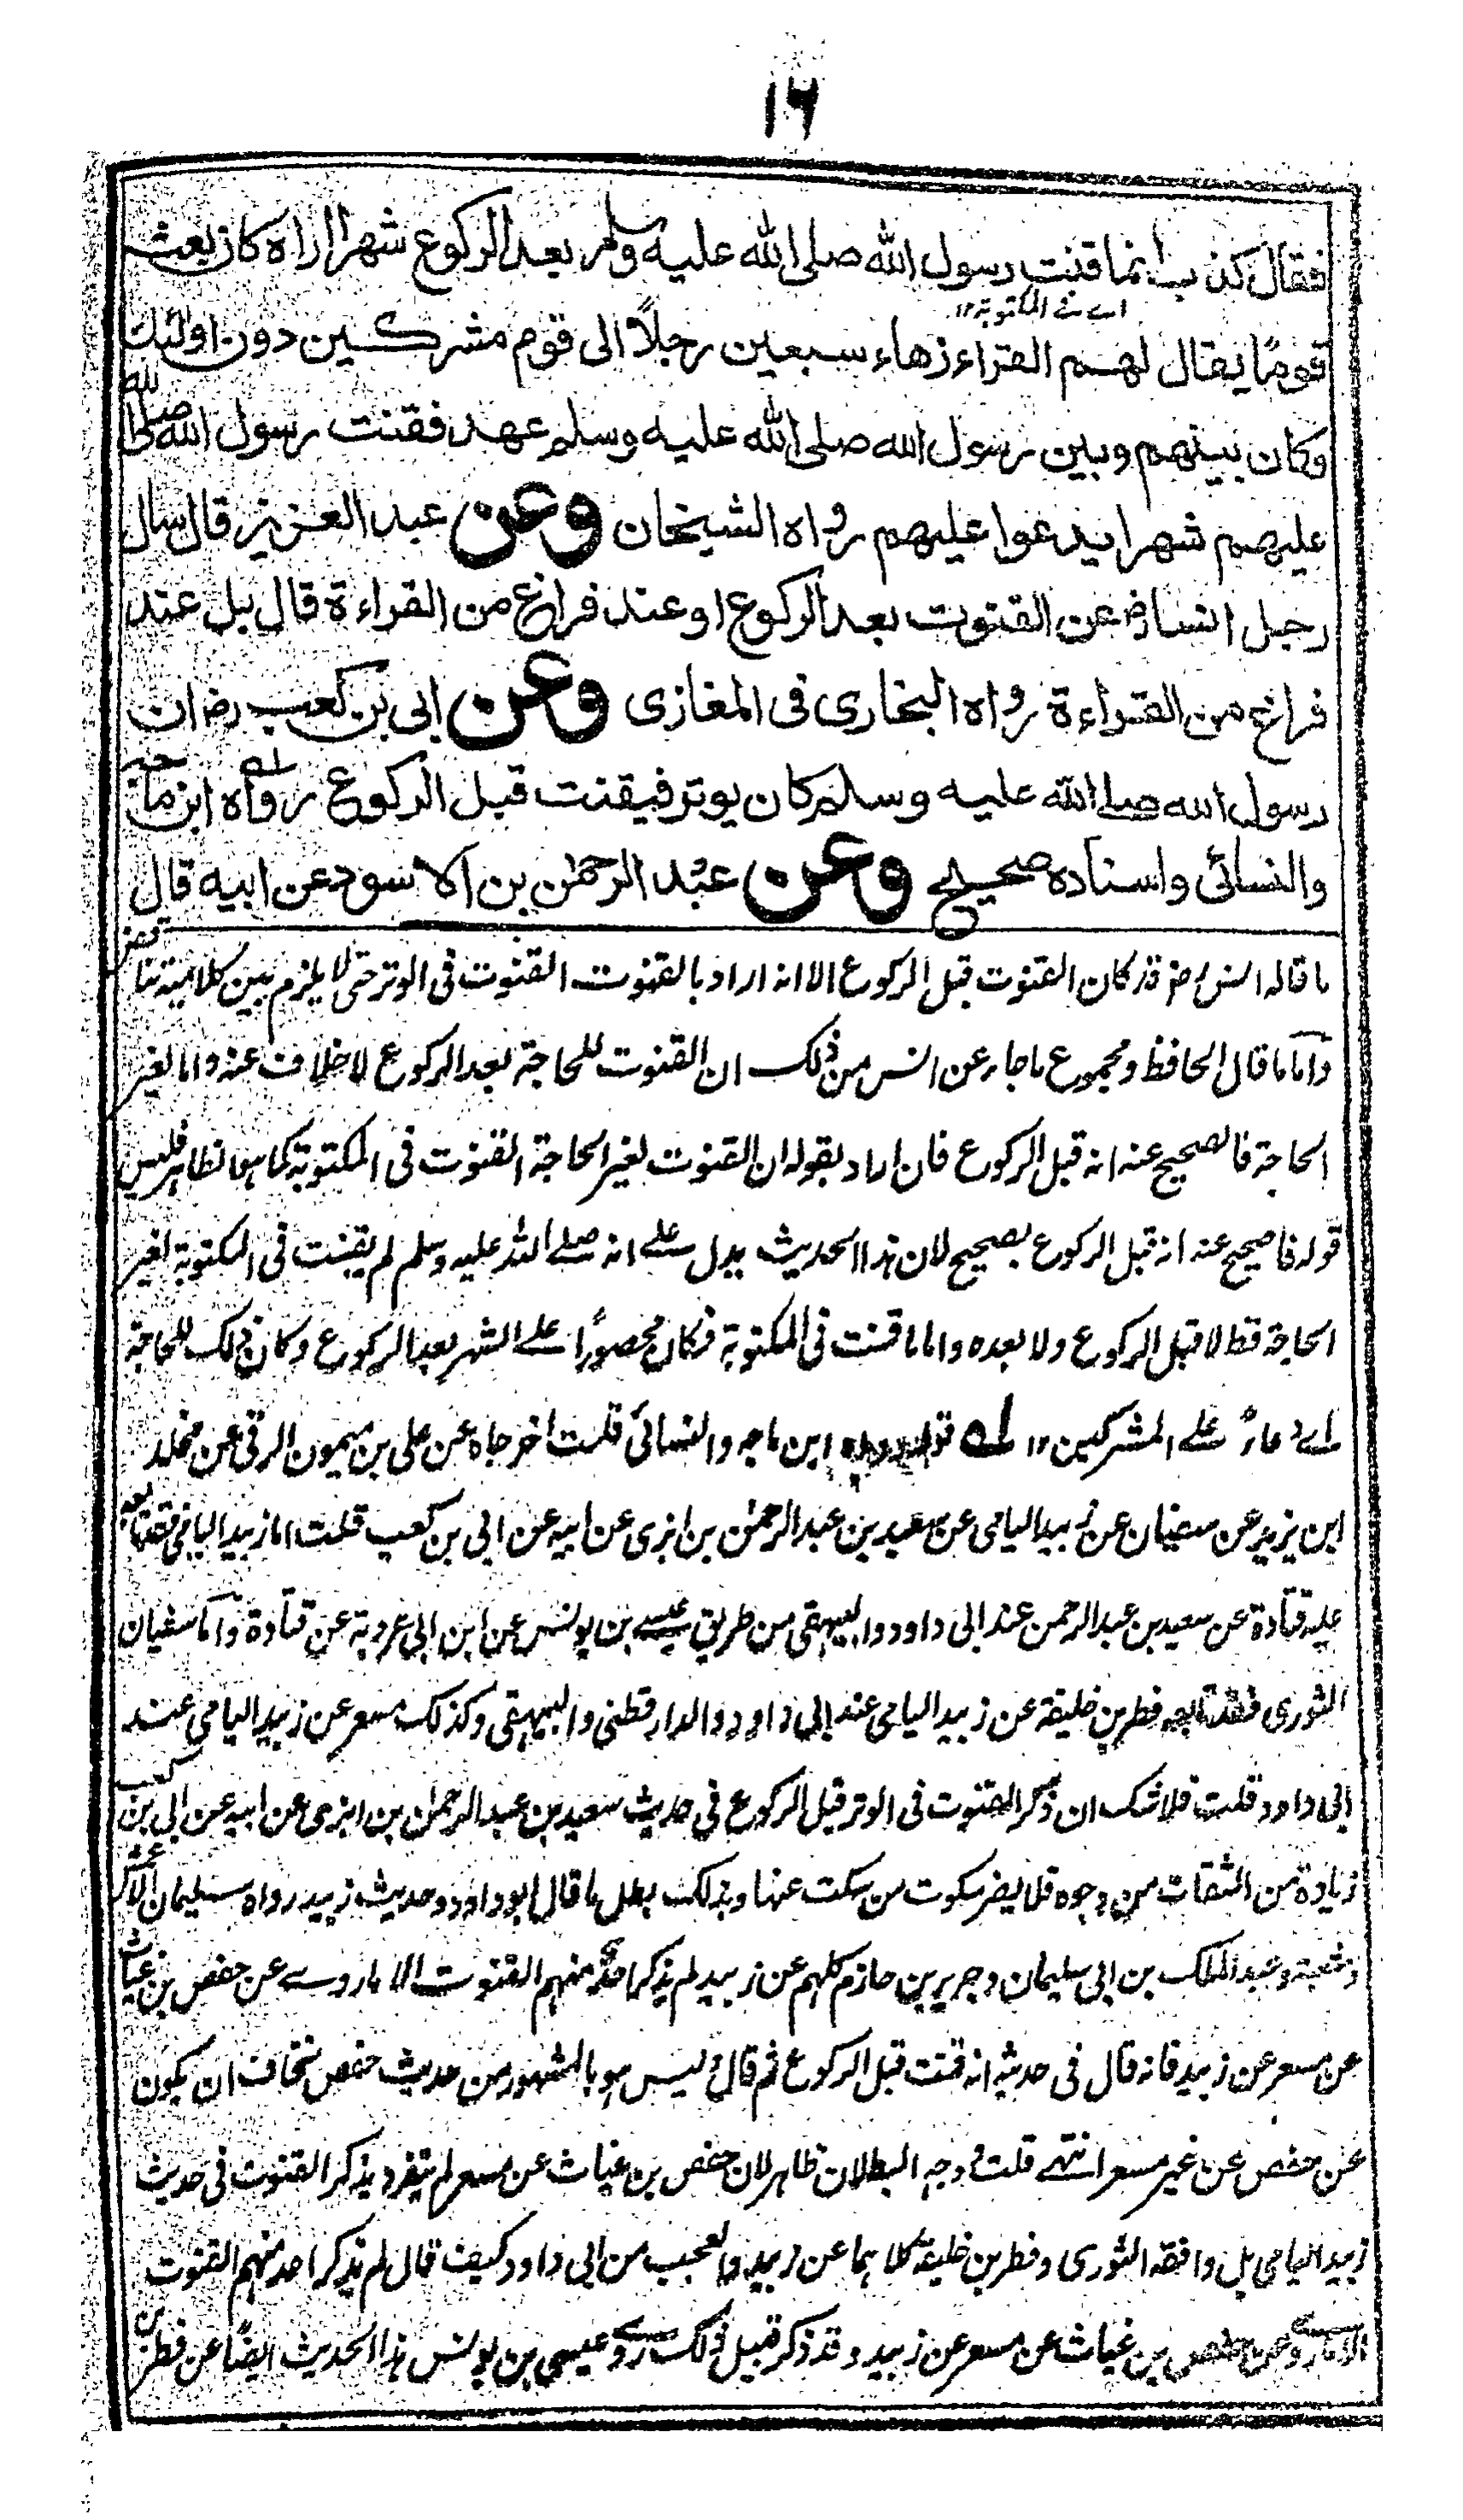 ۱۶
فقال كذب انما قنت رسول الله صلى الله عليه وسلم بعد الركوع شهرا اراه كان بعث
اے فی المکتوبة ۱۲
قومًا يقال لهم القراء زهاء سبعين رجلًا الى قوم مشركين دون اولئك
وكان بينهم وبين رسول الله صلى الله عليه وسلم عهد فقنت رسول الله صلى الله
عليهم شهرا يدعوا عليهم رواه الشيخان وعن عبد العزيز قال سال
رجل انسا رض عن القنوت بعد الركوع او عند فراغ من القراءة قال بل عند
فراغ من القراءة رواه البخارى فى المغازى وعن ابى بن كعب رض ان
رسول الله صلے الله عليه وسلم كان يوتر فيقنت قبل الركوع رواه ابن ماجه
والنسائى واسناده صحيح وعن عبد الرحمٰن بن الاسود عن ابيه قال
ما قاله انس رض قد كان القنوت قبل الركوع الا انه اراد بالقنوت القنوت فى الوتر حتى لا يلزم بين كلاميه تناقض
واما ما قال الحافظ ومجموع ما جاء عن انس من ذلك ان القنوت للحاجة بعد الركوع لا خلاف عنه واما لغير
الحاجة فالصحيح عنه انه قبل الركوع فان اراد بقوله ان القنوت لغير الحاجة القنوت فى المكتوبة كما هو الظاهر فليس
قوله فالصحيح عنه انه قبل الركوع بصحيح لان هذا الحديث يدل علے انه صلے الله عليه وسلم لم يقنت فى المكتوبة لغير
الحاجة قط لا قبل الركوع ولا بعده واما ما قنت فى المكتوبة فكان محصورًا علے الشهر بعد الركوع وكان ذلك للحاجة
اے دعاءً علے المشركين ۱۲ لــه قوله رواه ابن ماجه والنسائى قلت اخرجاه عن على بن ميمون الرقى عن مخلد
ابن يزيد عن سفيان عن زبيد اليامى عن سعيد بن عبد الرحمٰن بن ابزى عن ابيه عن ابى بن كعب قلت اما زبيد اليامى فقد تابعه
عليه قتادة عن سعيد بن عبد الرحمن عند ابى داود والبيهقى من طريق عيسے بن يونس عن ابن ابى عروبة عن قتادة واما سفيان
الثورى فقد تابعه فطر بن خليفة عن زبيد اليامى عند ابى داود والدارقطنى والبيهقى وكذلك مسعر عن زبيد اليامى عند
ابى داود قلت فلا شك ان ذكر القنوت فى الوتر قبل الركوع فى حديث سعيد بن عبد الرحمٰن بن ابزى عن ابيه عن ابى بن كعب
زيادة من الثقات من وجوه فلا يضر سكوت من سكت عنها وبذلك بطل ما قال ابو داود وحديث زبيد رواه سليمان الاعمش
وشعبة وعبد الملك بن ابى سليمان وجرير بن حازم كلهم عن زبيد لم يذكر احدٌ منهم القنوت الا ما روے عن حفص بن غياث
عن مسعر عن زبيد فانه قال فى حديثه انه قنت قبل الركوع ثم قال وليس هو بالمشهور من حديث حفص نخاف ان يكون
عن حفص عن غير مسعر انتهے قلت وجه البطلان ظاهر لان حفص بن غياث عن مسعر لم يتفرد بذكر القنوت فى حديث
زبيد اليامى بل وافقه الثورى وفطر بن خليفة كلاهما عن زبيد والعجب من ابى داود كيف قال لم يذكر احد منهم القنوت
الا ما روے عن حفص بن غياث عن مسعر عن زبيد وقد ذكر قبيل ذلك روے عيسى بن يونس هذا الحديث ايضًا عن فطر بن